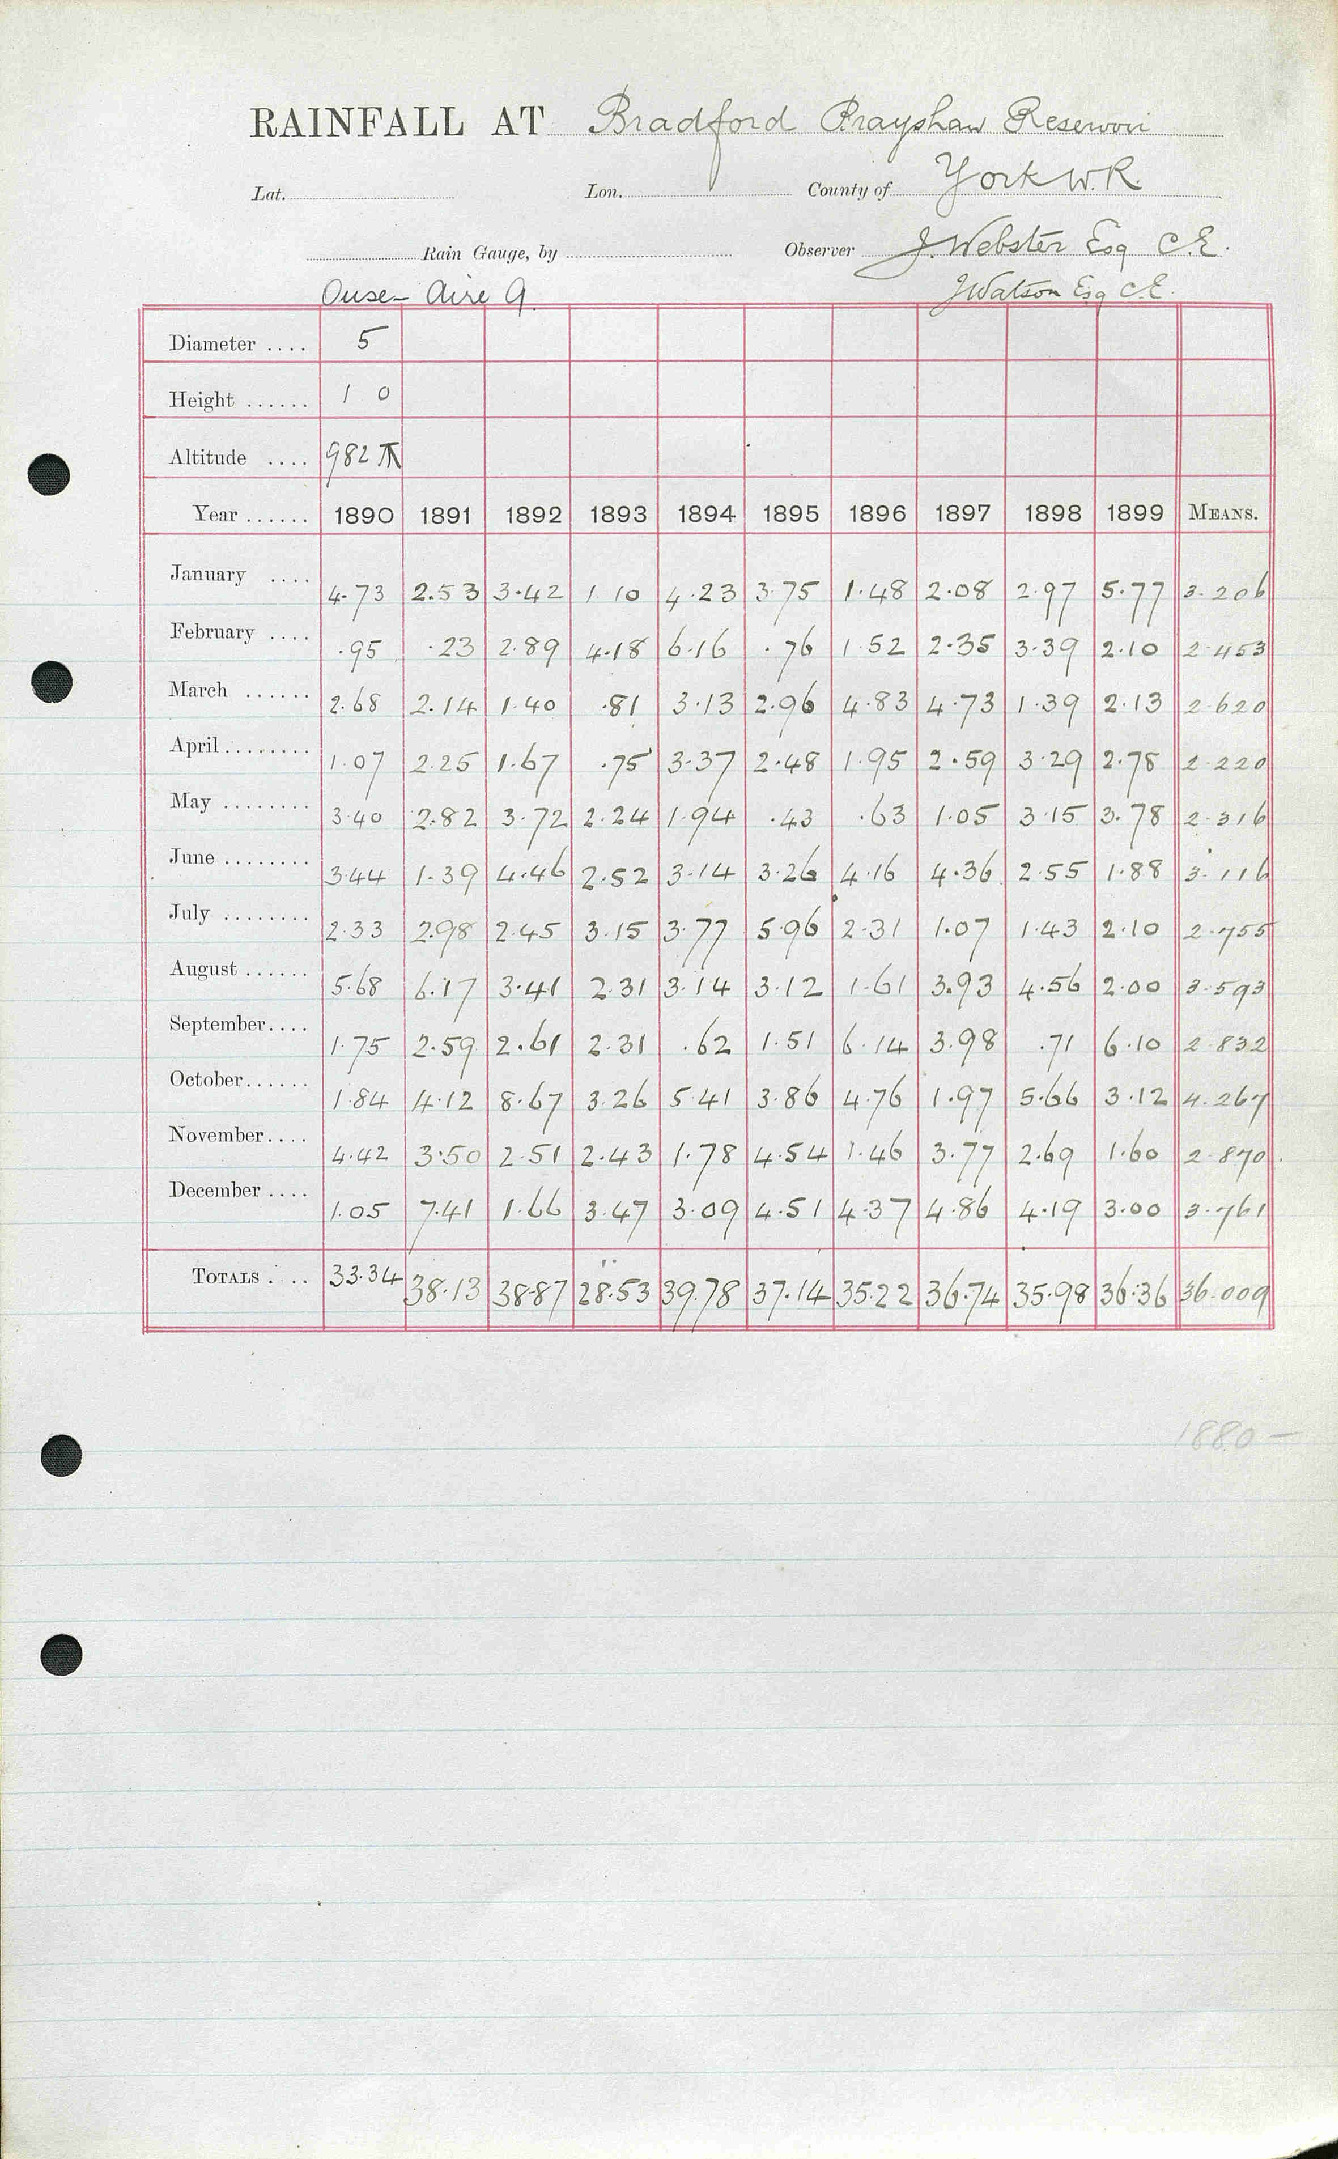 RAINFALL AT Bradford Brayshaw Reservoir
Lat. Lon. County of York W.R.
Rain Gauge, by Observer J. Webster Esq C.E.
Ouse - Aire 9 J Watson Esq C.E.
Diameter .... 5
Height ...... 1 0
Altitude .... 982
Year ...... 1890 1891 1892 1893 1894 1895 1896 1897 1898 1899 MEANS.
January .... 4.73 2.53 3.42 1 10 4.23 3.75 1.48 2.08 2.97 5.77 3.206
February .... .95 .23 2.89 4.18 6.16 .76 1 52 2.35 3.39 2.10 2.453
March ...... 2.68 2.14 1.40 .81 3.13 2.96 4.83 4.73 1.39 2.13 2.620
April ........ 1.07 2.25 1.67 .75 3.37 2.48 1.95 2.59 3.29 2.78 2.220
May ........ 3.40 2.82 3.72 2.24 1.94 .43 .63 1.05 3.15 3.78 2.316
June ........ 3.44 1.39 4.46 2.52 3.14 3.26 4.16 4.36 2.55 1.88 3.116
July ........ 2.33 2.98 2.45 3.15 3.77 5.96 2.31 1.07 1.43 2.10 2.755
August ...... 5.68 6.17 3.41 2.31 3.14 3.12 1.61 3.93 4.56 2.00 3.593
September.... 1.75 2.59 2.61 2.31 .62 1.51 6.14 3.98 .71 6.10 2.832
October...... 1.84 4.12 8.67 3.26 5.41 3.86 4.76 1.97 5.66 3.12 4.267
November.... 4.42 3.50 2.51 2.43 1.78 4.54 1.46 3.77 2.69 1.60 2.870
December .... 1.05 7.41 1.66 3.47 3.09 4.51 4.37 4.86 4.19 3.00 3.761
TOTALS .... 33.34 38.13 38.87 28.53 39.78 37.14 35.22 36.74 35.98 36.36 36.009
1880 —